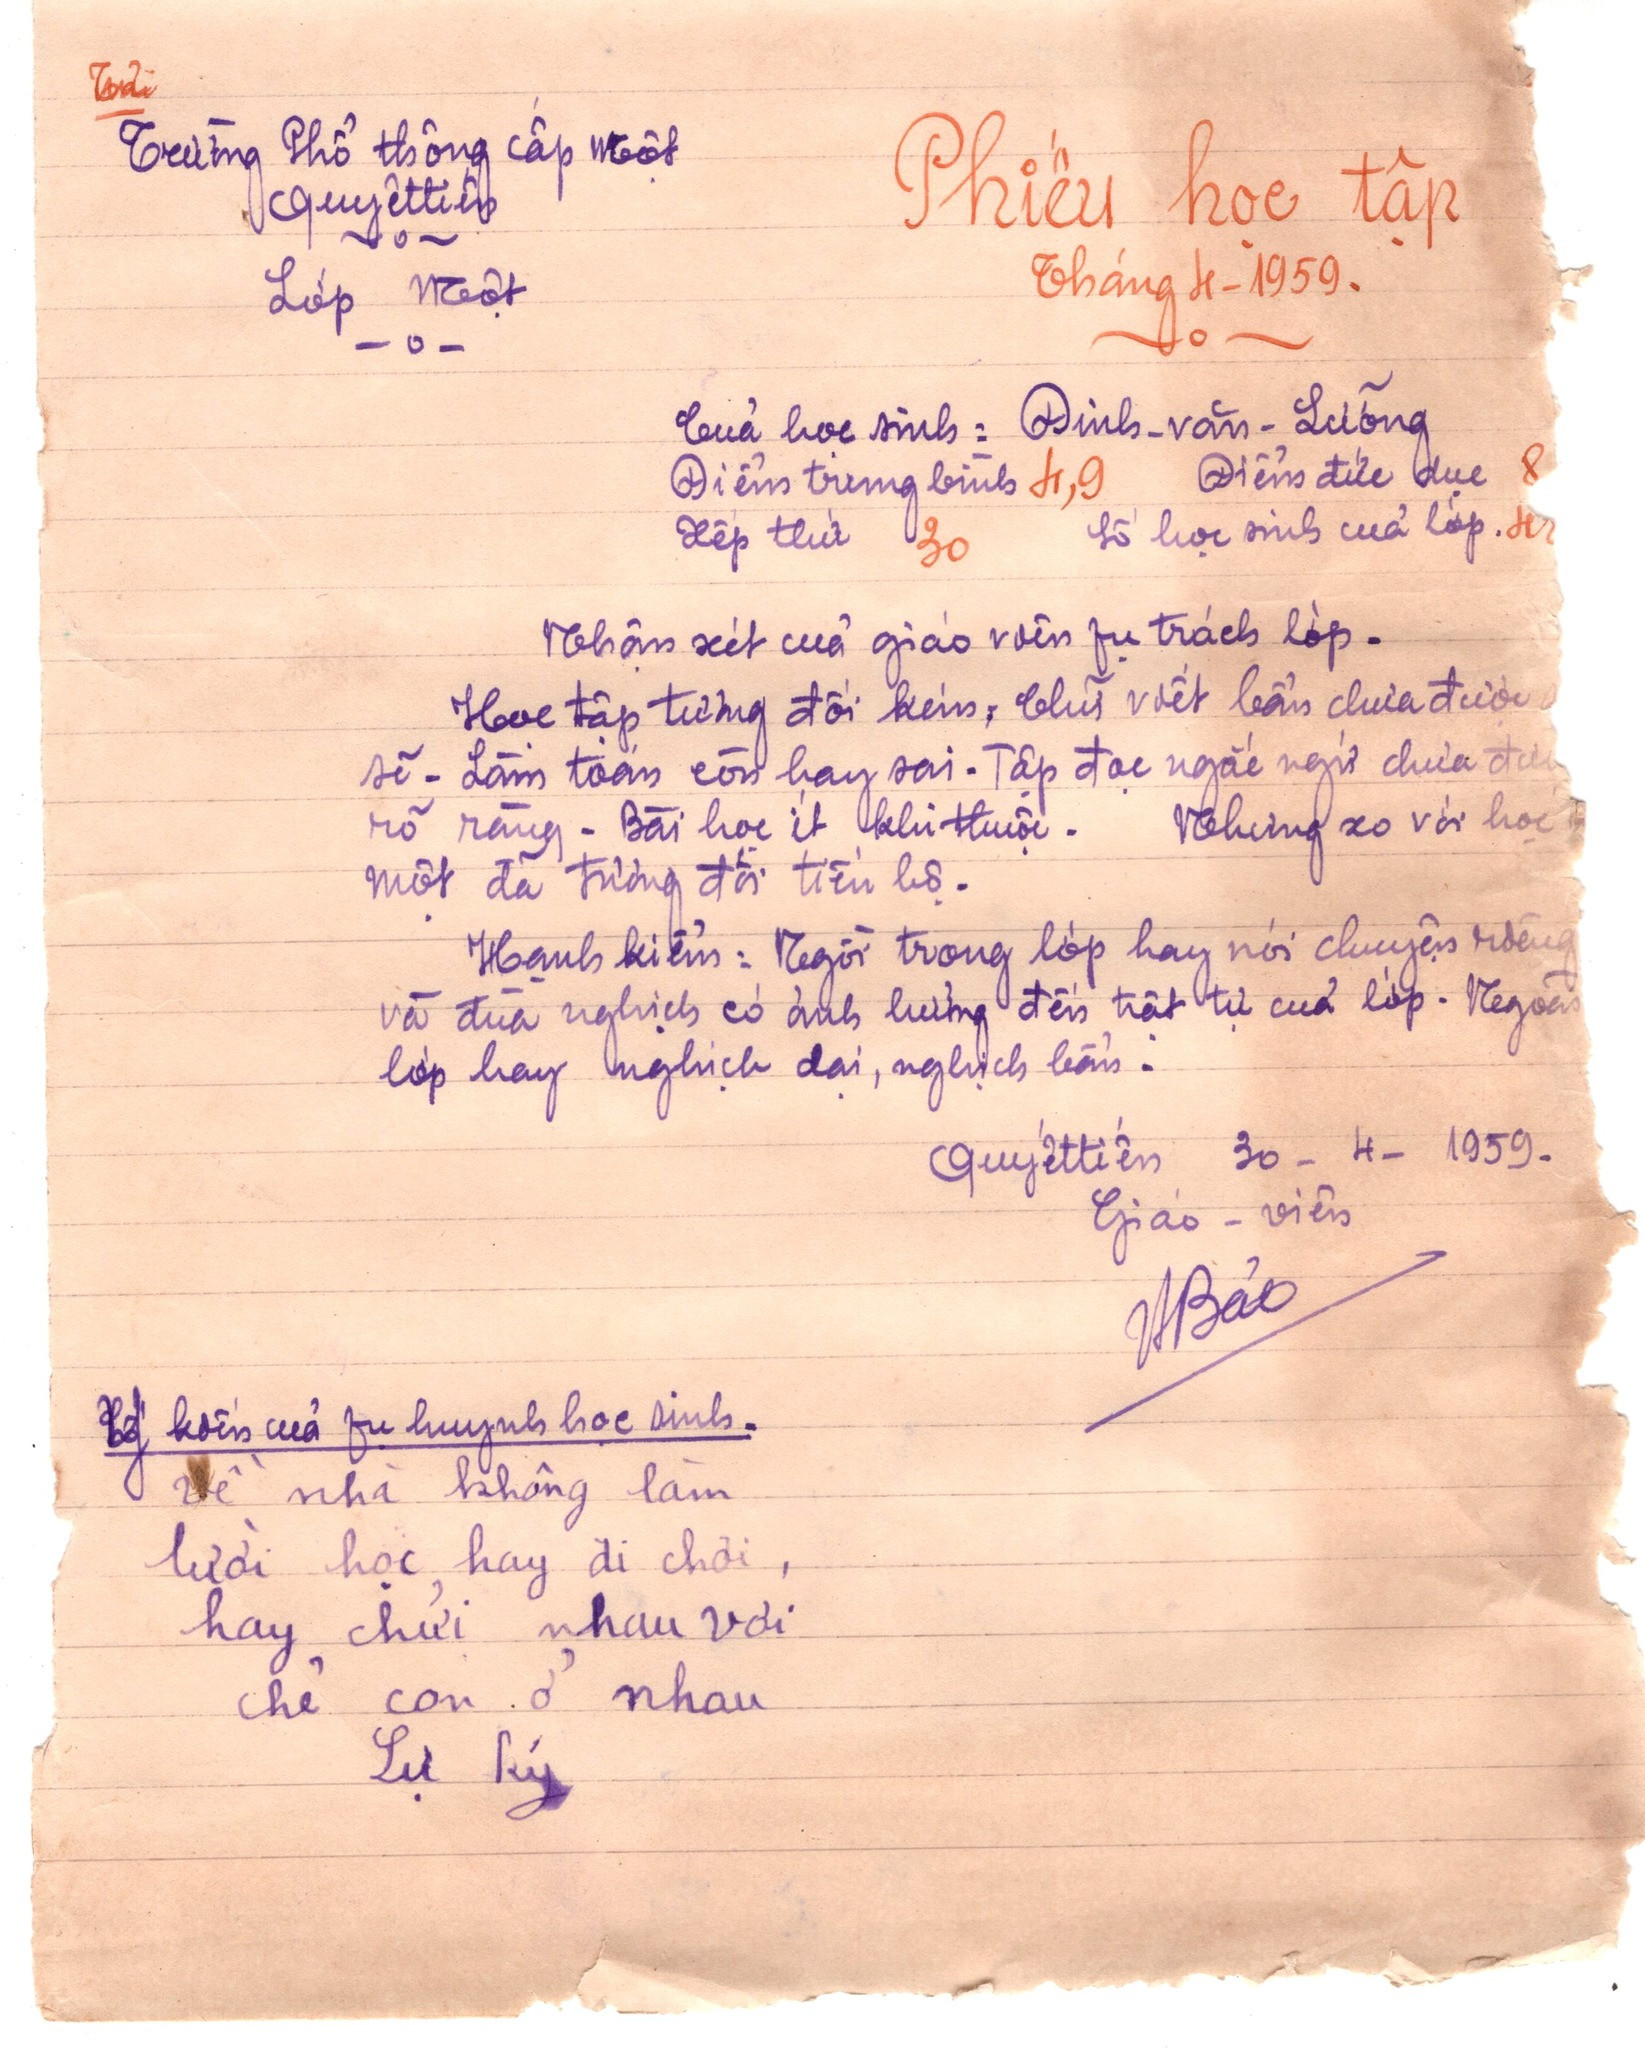 Trường Phổ thông cấp một
Quyếttiến
Lớp một
Phiếu học tập
Tháng 4-1959.
Cuả học sinh: Đinh-văn-Lưỡng
Điểm trung bình 4,9 Điểm đức dục 8
Xếp thứ 30 Số học sinh cuả lớp.
Nhận xét cuả giáo viên fụ trách lớp.
Học tập tương đối kém, Chữ viết bẩn chưa được
sẽ - Làm toán còn hay sai - Tập đọc ngắc ngứ chưa được
rõ ràng - Bài học ít khi thuộc. Nhưng so với học
một đã tương đối tiến bộ.
Hạnh kiểm: Ngồi trong lớp hay nói chuyện riêng
và đuà nghịch có ảnh hưởng đến trật tự cuả lớp. Ngoài
lớp hay nghịch dại, nghịch bẩn.
Quyếttiến 30 - 4 - 1959.
Giáo - viên
Bảo
Ý kiến cuả fụ huynh học sinh.
Về nhà không làm
lười học, hay đi chơi,
hay chửi nhau với
chẻ con ở nhau
Lự ký